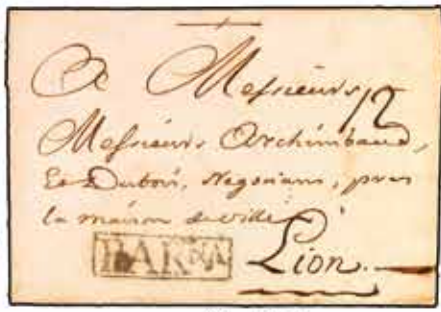 A Messieurs
12
Messieurs Archimbaud,
Et Dubois, Negocians, pres
la maison de ville
BARNA
Lion.